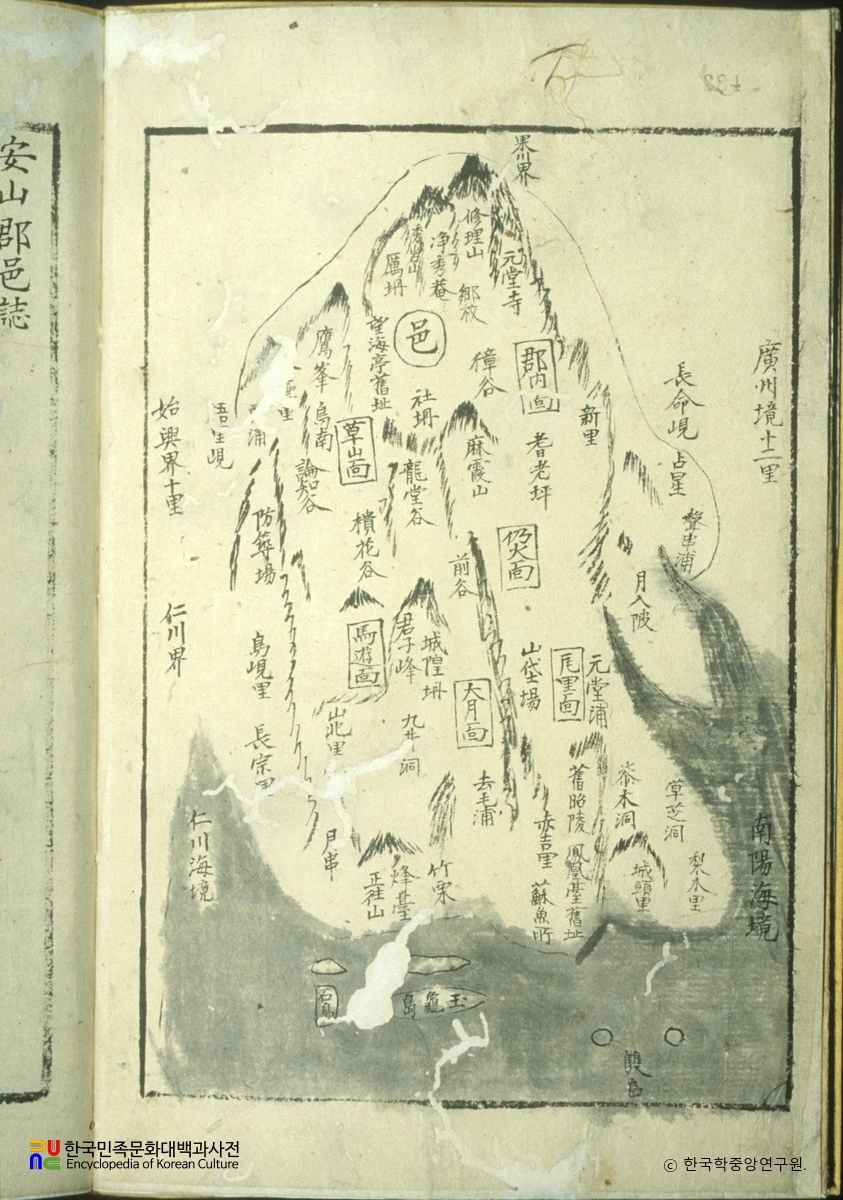 安山郡邑誌
果川界
修理山
净秀菴
元堂寺
厲坍
鄉校
邑
望海亭舊址
鷹峯
郡内面
獐谷
社坍
新里
長命峴
廣州境十二里
占星
聲串浦
始興界十里
鳥南
草山面
論知谷
龍堂谷
麻霞山
耆老坪
防築場
樻花谷
前谷
仍火面
月入陂
仁川界
鳥峴里
馬遊面
君子峰
城隍坍
山垈場
瓦里面
元堂浦
大月面
長宗里
山北里
九井洞
去毛浦
舊昭陵
柒木洞
草芝洞
仁川海境
月串
正往山
烽臺
竹栗
赤吉里
蘇魚所
鳳凰臺舊址
城頭里
梨木里
南陽海境
石島
玉龜島
雙島
한국민족문화대백과사전
Encyclopedia of Korean Culture
© 한국학중앙연구원.